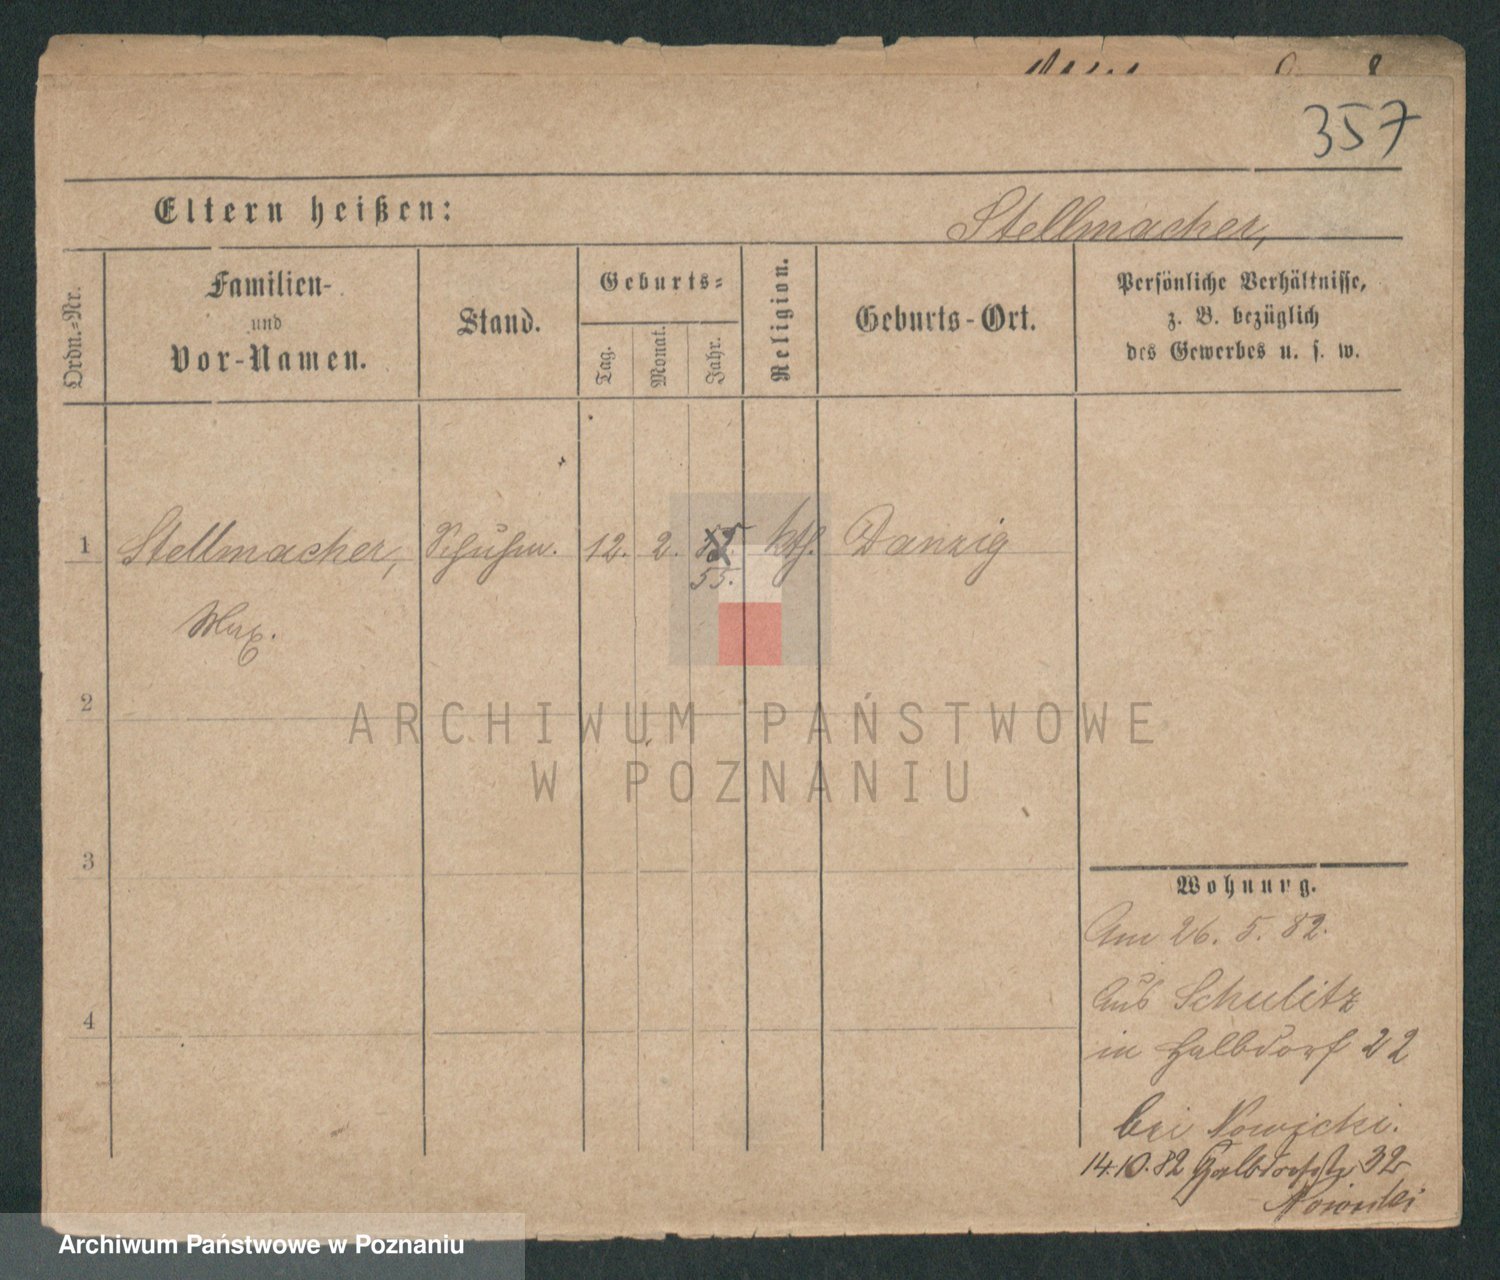 357
Eltern heißen:
Stellmacher,
Ordn.-Nr.
Familien-
und
Vor-Namen.
Stand.
Geburts-
Tag.
Monat.
Jahr.
Religion.
Geburts-Ort.
Persönliche Verhältnisse,
z. B. bezüglich
des Gewerbes u. s. w.
1
Stellmacher,
Schuhm.
12.
2.
55.
kth.
Danzig
Max.
2
ARCHIWUM PAŃSTWOWE
W POZNANIU
3
Wohnung.
Am 26. 5. 82.
aus Schulitz
4
in Halbdorf 22
bei Nowicki.
14.10.82 Halbdorfstr 32
Archiwum Państwowe w Poznaniu